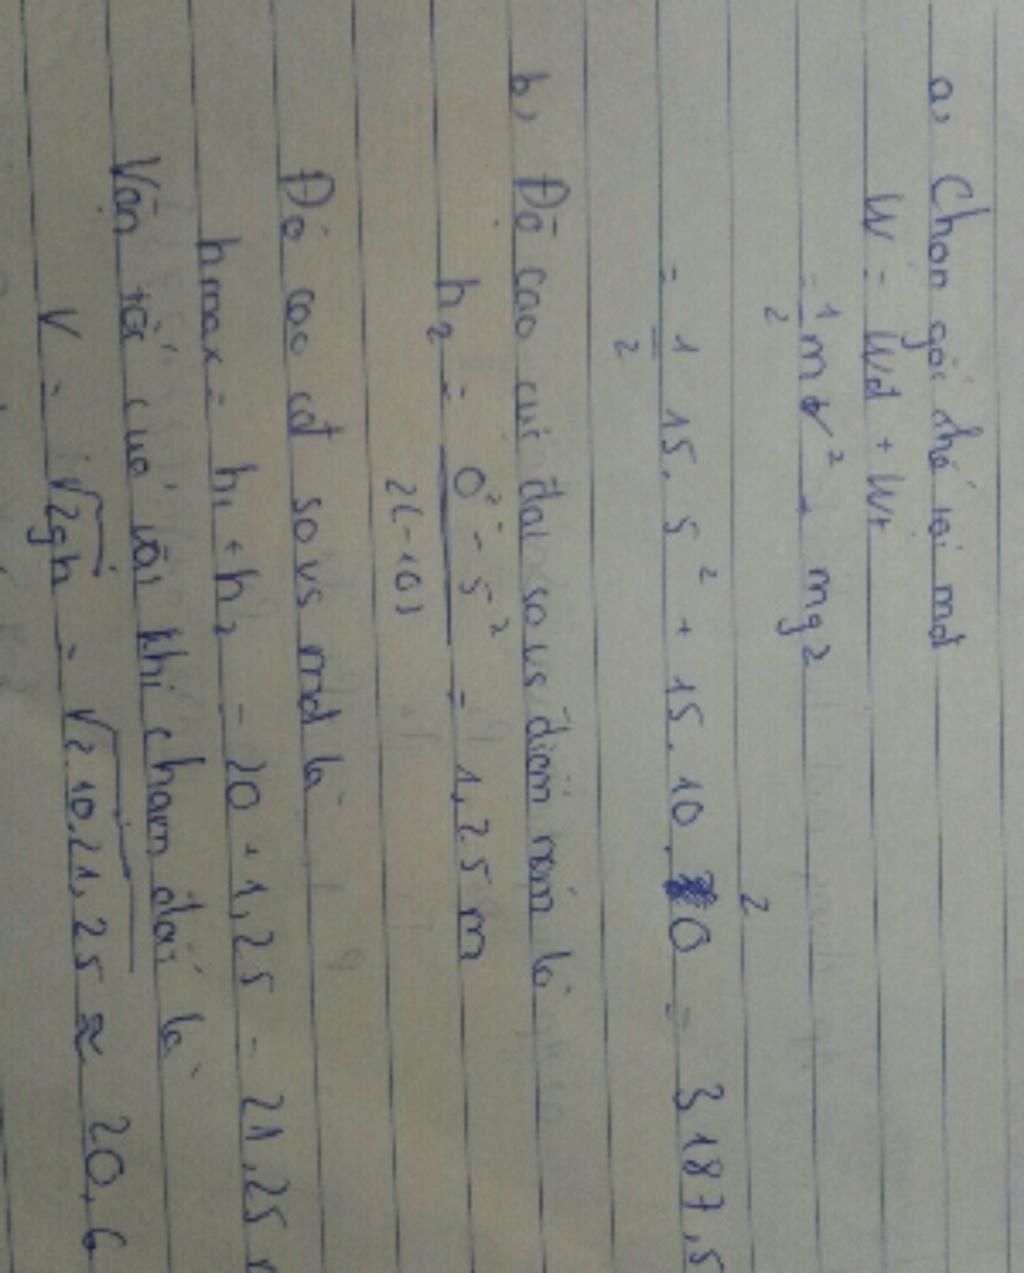 a, Chọn gốc thế tại mđ
W = Wđ + Wt
= 1/2 mv² + mgz
= 1/2 15. 5² + 15. 10. 20 = 3187,5
b, Độ cao cực đại so vs điểm ném là
h₂ = 0² - 5² / 2(-10) = 1,25 m
Độ cao cđ so vs mđ là
hmax = h₁ + h₂ = 20 + 1,25 = 21,25
Vận tốc của vật khi chạm đất là
V = √2gh = √2.10.21,25 ≈ 20,6